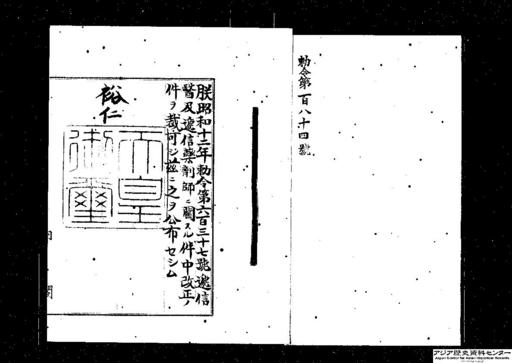 勅令第一百八十四號
朕昭和十二年勅令第六百三十七號遞信
醫及遞信藥劑師ニ關スル件中改正ノ
件ヲ裁可シ茲ニ之ヲ公布セシム
裕仁
天皇御璽
内閣
アジア歴史資料センター
Japan Center for Asian Historical Records